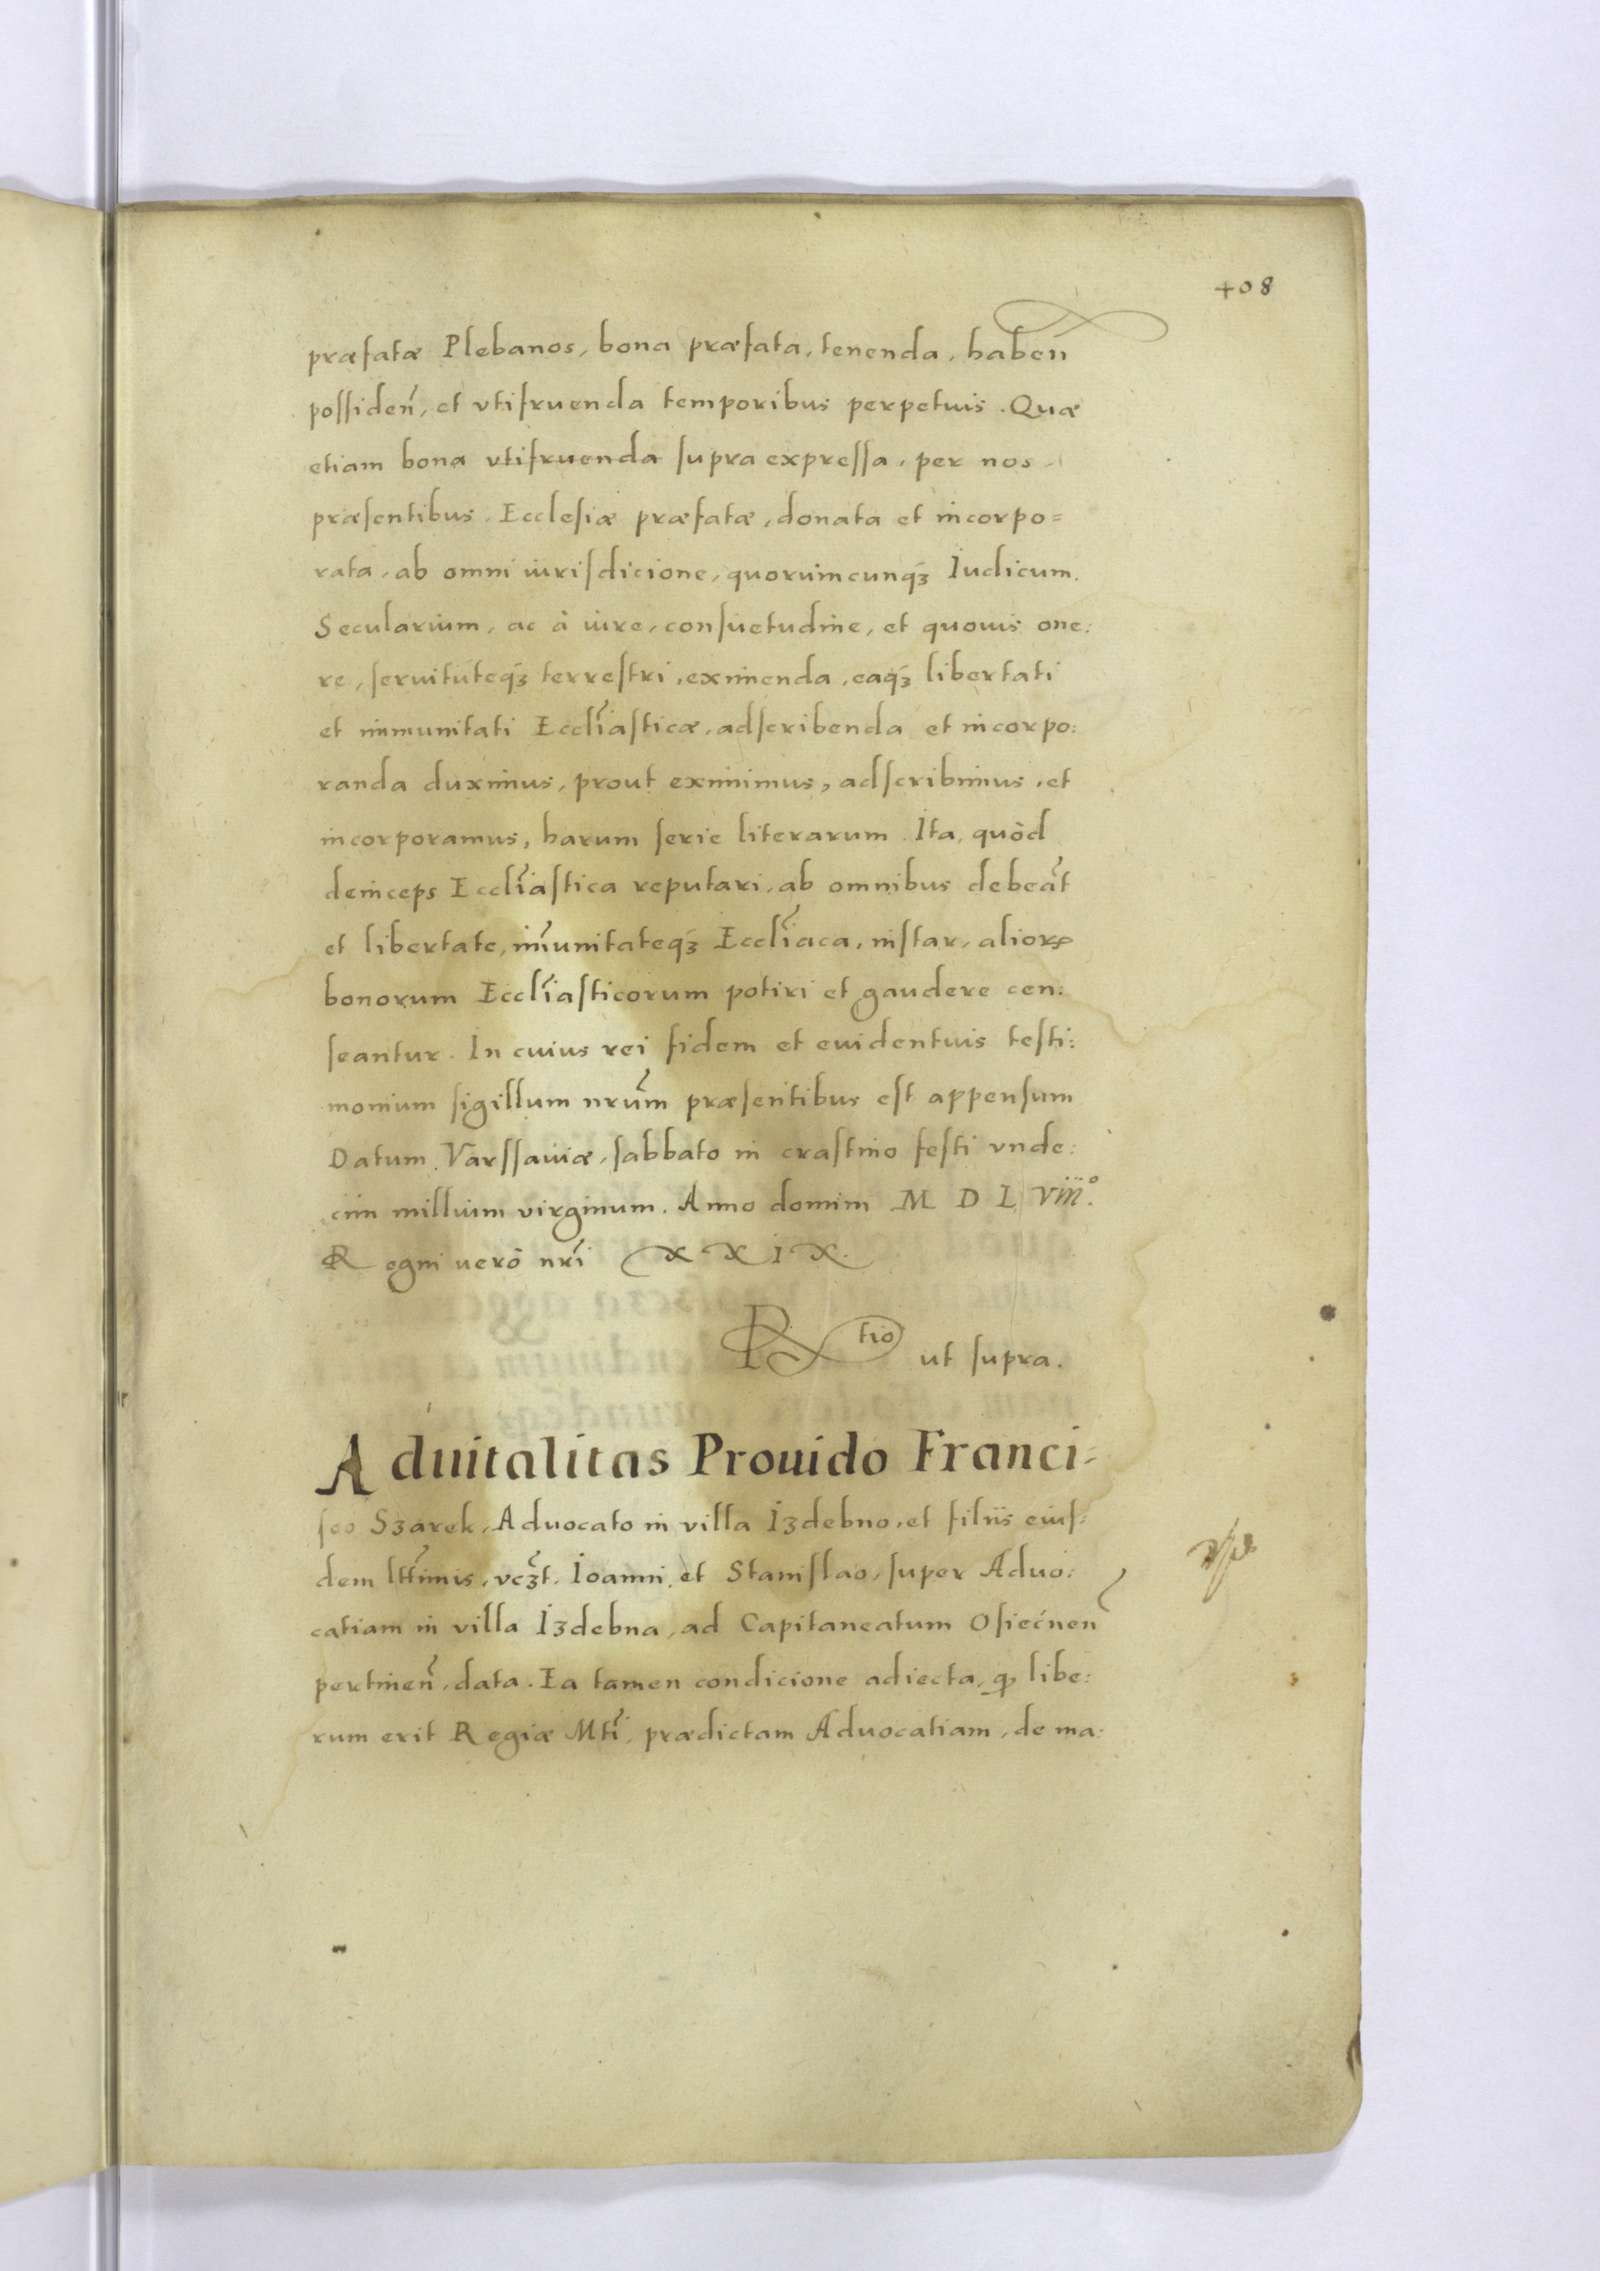 408
præfatæ Plebanos, bona præfata, tenenda, habeñ
possideñ, et vtifruenda temporibus perpetuis. Quæ
etiam bona vtifruenda supra expressa, per nos
præsentibus, Ecclesiæ præfatæ, donata et incorpo=
rata, ab omni iurisdicione, quorumcunqꝫ Iudicum.
Secularium, ac à iure, consuetudine, et quouis one:
re, seruitúteqꝫ terrestri, eximenda, eaqꝫ libertati
et immunitati Eccłiasticæ, adscribenda et incorpo:
randa duximus, prout eximimus, adscribimus, et
incorporamus, harum serie literarum. Ita, quòd
deinceps Eccłiastica reputari, ab omnibus debeãt
et libertate, im̃unitateqꝫ Eccłiaca, instar, alioꝝ
bonorum Eccłiasticorum potiri et gaudere cen:
seantur. In cuius rei fidem et euidentuis testi:
monium sigillum nrũm præsentibus est appensum
Datum Varssauiæ, sabbato in crastino festi vnde:
cim millium virginum. Anno domini M D L Viiiº.
Regni uerò nrĩ XXIX.
Rtio ut supra.
Aduitalitas Prouido Franci-
sco Szarek, Aduocato in villa Izdebno, et filiis eius:
dem ltt̃imis, vcꝫt. Ioanni et Stanislao, super Aduo:
catiam in villa Izdebna, ad Capitaneatum Osiećnen̄
pertineñ, data. Ea tamen condicione adiecta, ꝙ libe:
rum erit Regiæ Mtĩ, prædictam Aduocatiam, de ma: